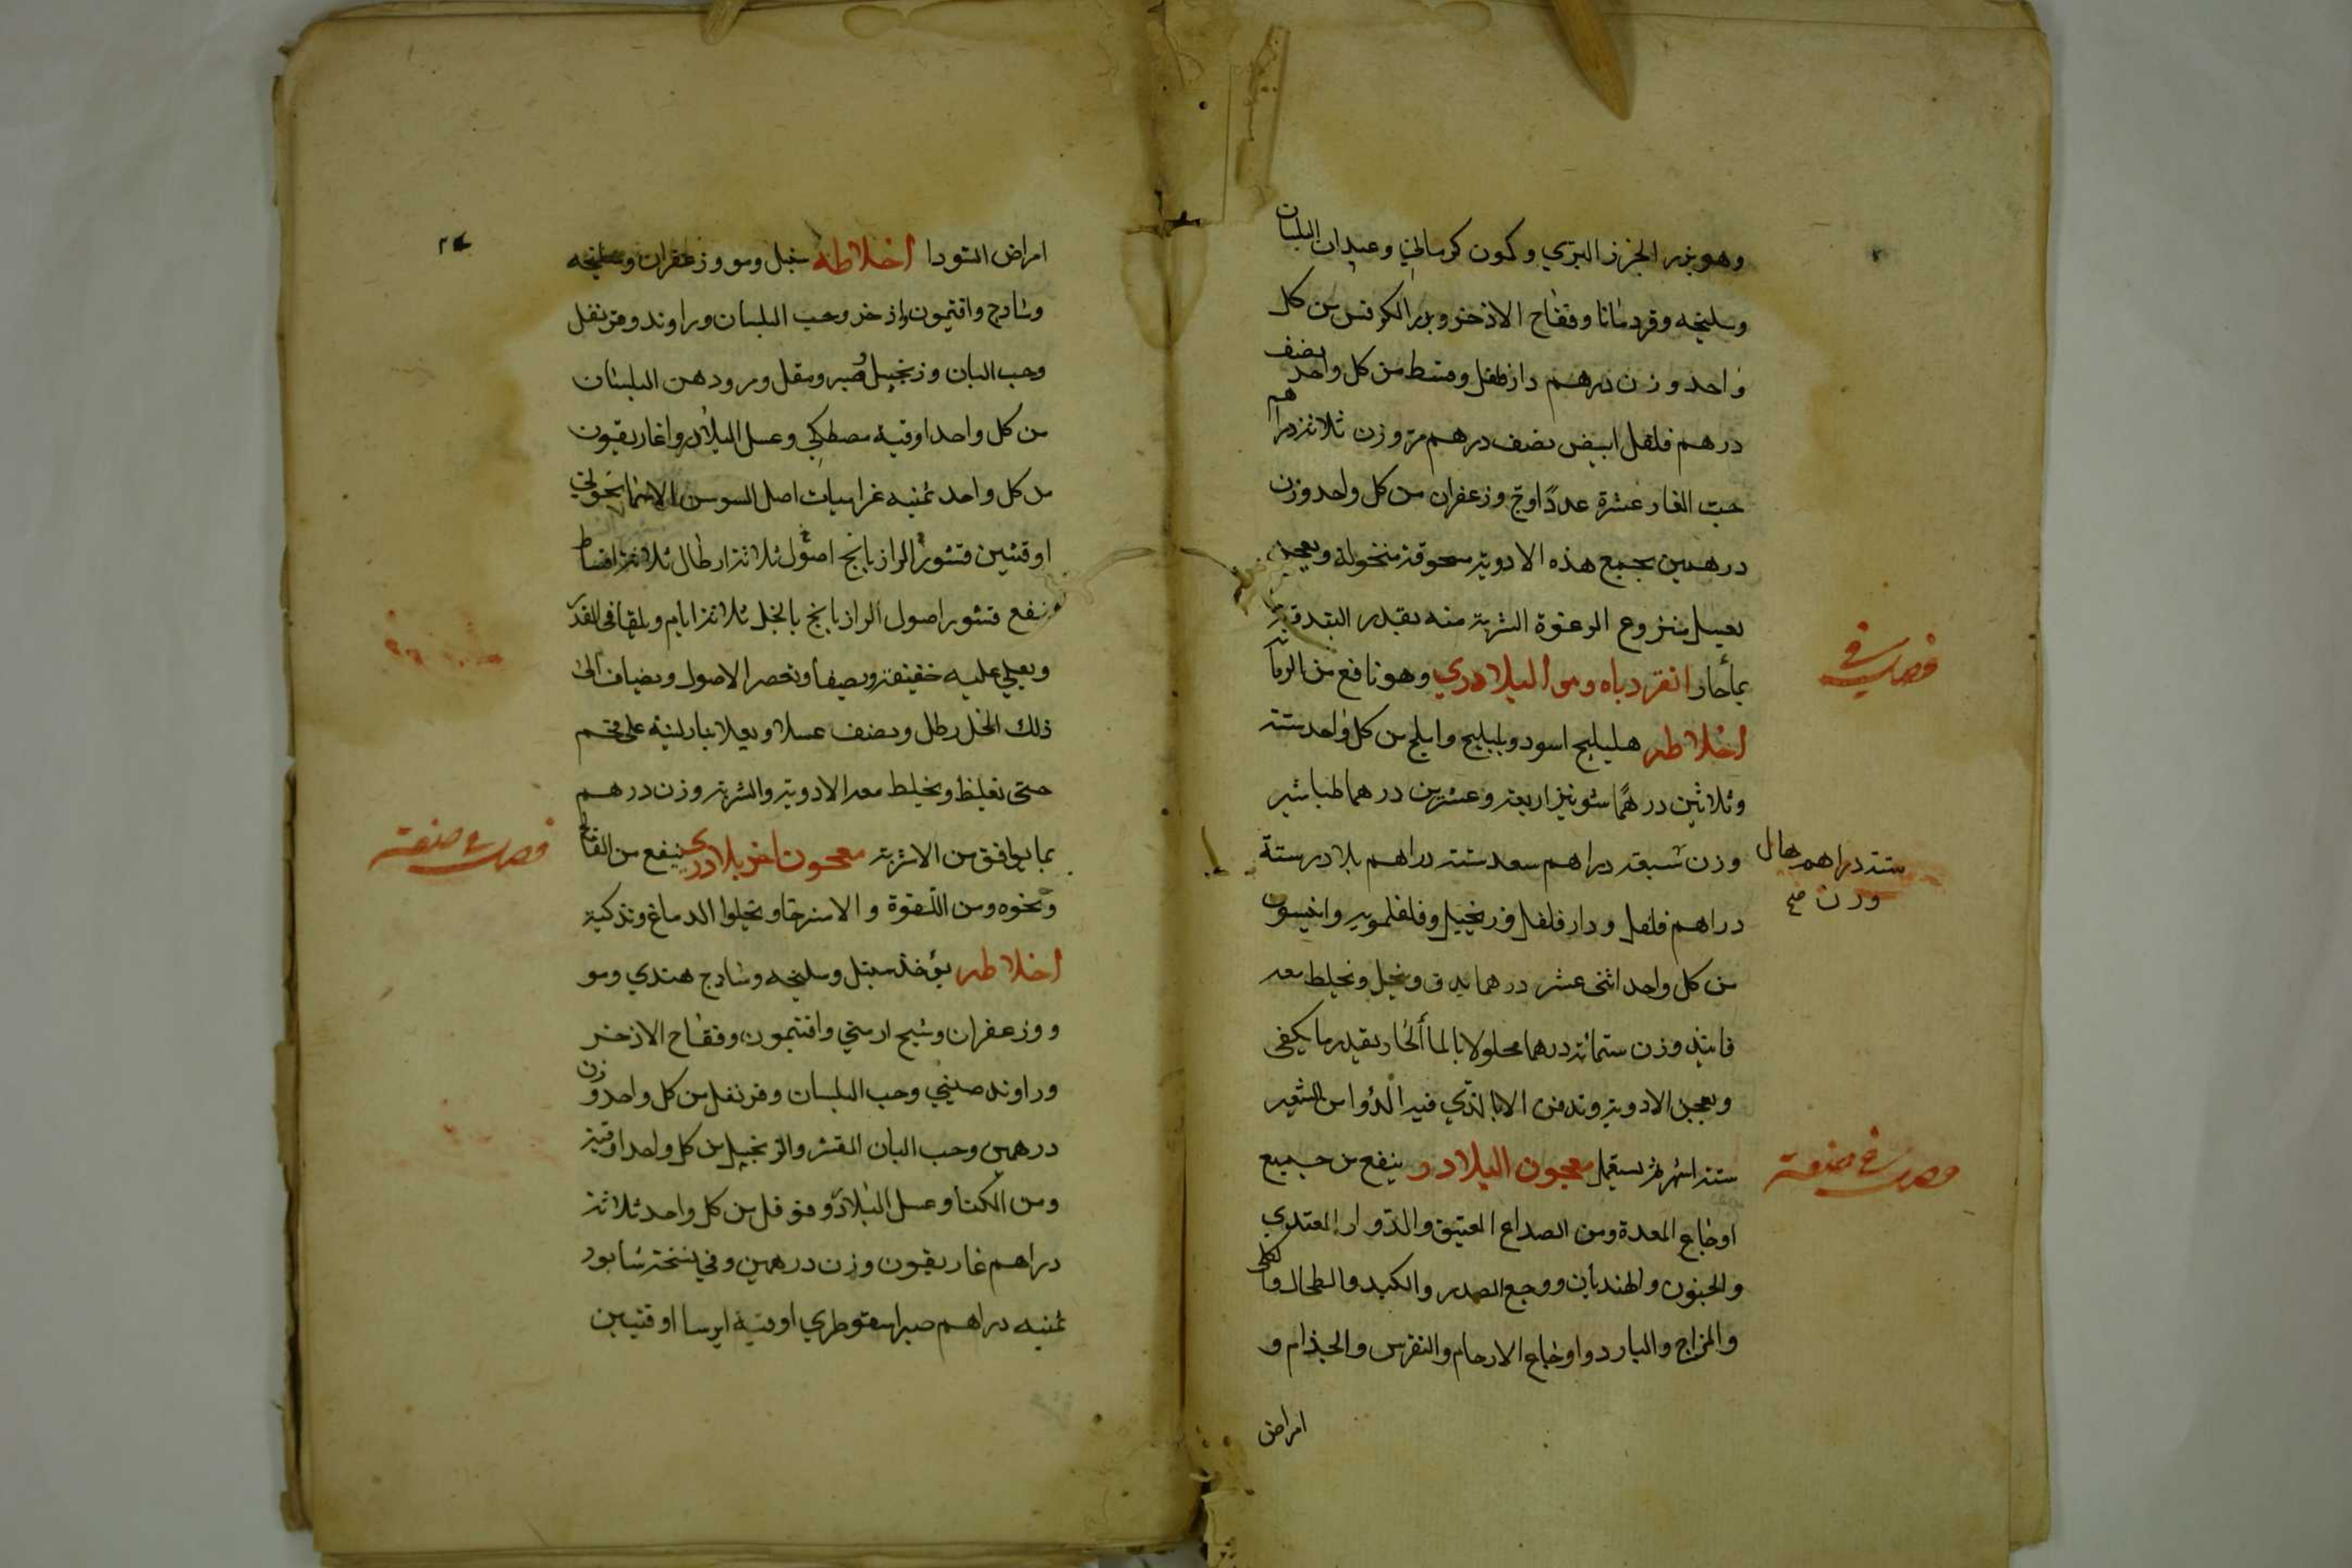 وهو بزر الجزر البري وكمون كرماني وعيدان البلسان
وسليخه وقردمانا وفقاح الاذخر وبزر الكرفس من كل
واحد وزن درهم دارفلفل وقسط من كل واحد نصف
درهم فلفل ابيض نصف درهم مر وزن ثلاثة دراهم
حبت الغار عشرة عددًا وج وزعفران من كل واحد وزن
درهمين يجمع هذه الادوية مسحوقة منخولة ويعجن
بعسل منزوع الرغوة الشربة منه بقدر البندقة
بمأحار انقرديا وهو البلادري وهو نافع من
فصل في
أخلاطه هليلج اسود وبليلج واملج من كل واحد ستة
وثلاثين درهمًا شونيز اربعة وعشرين درهما طباشير
وزن سبعة دراهم سعد ستة دراهم بلادر ستة
ستة دراهم هال
وزن صح
دراهم فلفل ودار فلفل وزنجبيل وفلفلمويه وانيسون
من كل واحد اثنى عشر درهما يدق وينخل ويخلط معه
فانيذ وزن ستمائة درهما محلولا بالماألحار بقدر ما يكفى
ويعجن الادوية وتدفن الانا الذي فيه الدوا من الشعير
ستة اشهر ثم يستعمل معجون البلادر ينفع من جميع
فصل في صنعة
اوجاع المعدة ومن الصداع العتيق والدوار المعتدي
والجنون والهنديان ووجع الصدر والكبد والطحال والكلى
والمزاج والبارد واوجاع الارحام والنقرس والجذام و
امراض
امراض السودا أخلاطه سنبل ومو وزعفران وسليخه
وشادج وافتيمون واذخر وحب البلسان وراوند وقرنفل
وحب البان وزنجبيل وصبر ومقل ومر ودهن البلسان
من كل واحد اوقية مصطكي وعسل البلادر واغاريقون
من كل واحد ثمنيه غراميات اصل السوسن الاسمانجوني
اوقتين قشور الرازيانج اصول ثلاثة ارطال ثلاثة اقساط
ينقع قشور اصول الرازيانج بالخل ثلاثة ايام ويلقا فى القدر
ويغلي عليه خفيفة ويصفا وتعصر الاصول ويضاف الى
ذلك الخل رطل ونصف عسلا ويغلا بنار لينة على فحم
حتى تغلظ ويخلط معه الادوية والشربة وزن درهم
بما يوافق من الاشربة معجون اخر بلادري ينفع من الفالج
فصل في صنعة
ونحوه ومن اللقوة والاسترخا ويجلوا الدماغ وتذكية
أخلاطه يؤخذ سنبل وسليخه وشادج هندي ومو
ووزعفران وشيح ارمني وافتيمون وفقاح الاذخر
وراوند صيني وحب البلسان وقرنفل من كل واحد وزن
درهمين وحب البان المقشر والزنجبيل من كل واحد اوقية
ومن الكتا وعسل البلادر وفوفل من كل واحد ثلاثة
دراهم غاريقون وزن درهمين وفي نسخة سابور
ثمنيه دراهم صبر اسقوطري اوقية ايرسا اوقيتين